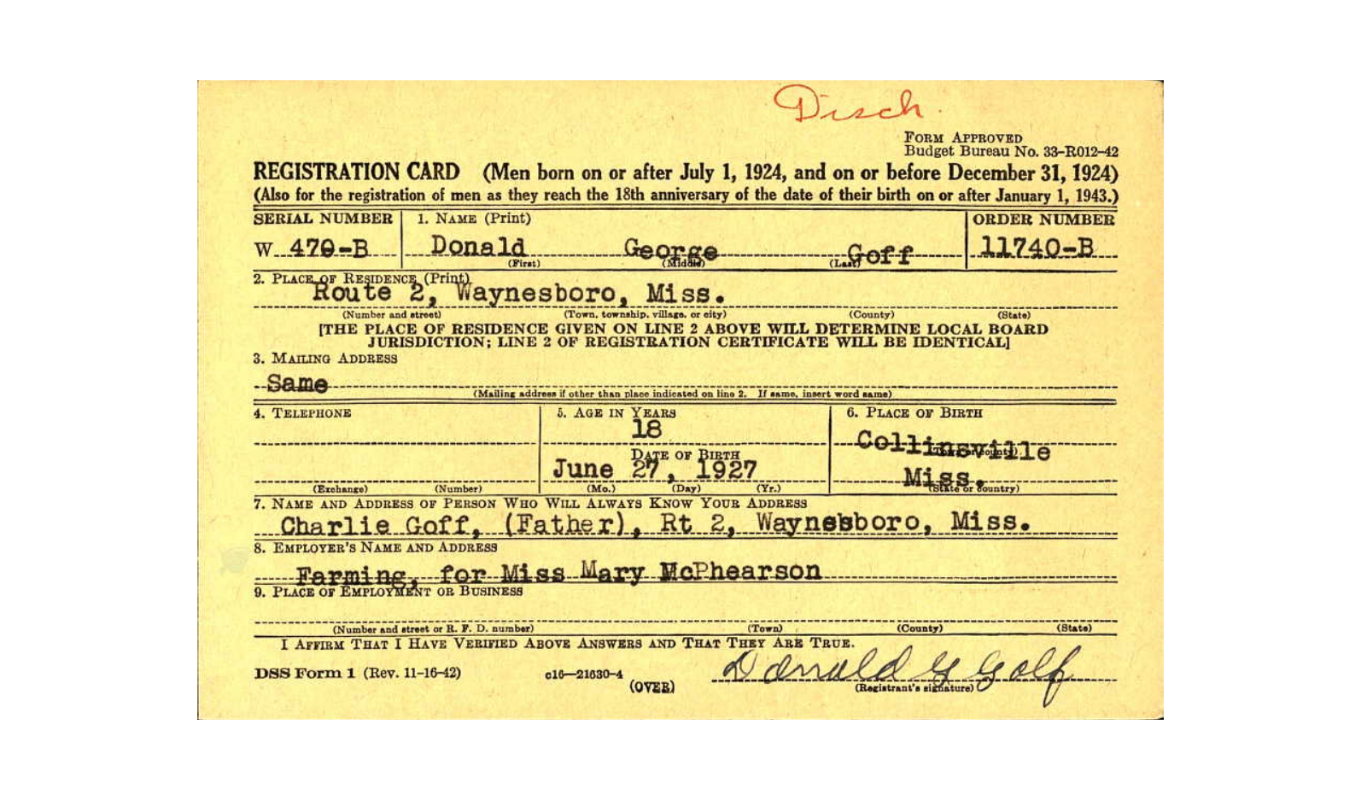 Disch.
FORM APPROVED
Budget Bureau No. 33-R012-42
REGISTRATION CARD (Men born on or after July 1, 1924, and on or before December 31, 1924)
(Also for the registration of men as they reach the 18th anniversary of the date of their birth on or after January 1, 1943.)
SERIAL NUMBER 1. NAME (Print) ORDER NUMBER
W 470-B Donald George Goff 11740-B
(First) (Middle) (Last)
2. PLACE OF RESIDENCE (Print)
Route 2, Waynesboro, Miss.
(Number and street) (Town, township, village, or city) (County) (State)
[THE PLACE OF RESIDENCE GIVEN ON LINE 2 ABOVE WILL DETERMINE LOCAL BOARD
JURISDICTION; LINE 2 OF REGISTRATION CERTIFICATE WILL BE IDENTICAL]
3. MAILING ADDRESS
Same
(Mailing address if other than place indicated on line 2. If same, insert word same)
4. TELEPHONE 5. AGE IN YEARS 6. PLACE OF BIRTH
18
Collinsville
(Town or county)
DATE OF BIRTH
June 27, 1927 Miss.
(Exchange) (Number) (Mo.) (Day) (Yr.) (State or country)
7. NAME AND ADDRESS OF PERSON WHO WILL ALWAYS KNOW YOUR ADDRESS
Charlie Goff, (Father), Rt 2, Waynesboro, Miss.
8. EMPLOYER'S NAME AND ADDRESS
Farming, for Miss Mary McPhearson
9. PLACE OF EMPLOYMENT OR BUSINESS
(Number and street or R. F. D. number) (Town) (County) (State)
I AFFIRM THAT I HAVE VERIFIED ABOVE ANSWERS AND THAT THEY ARE TRUE.
DSS Form 1 (Rev. 11-16-42) c16—21630-4 Donald G Goff
(OVER) (Registrant's signature)